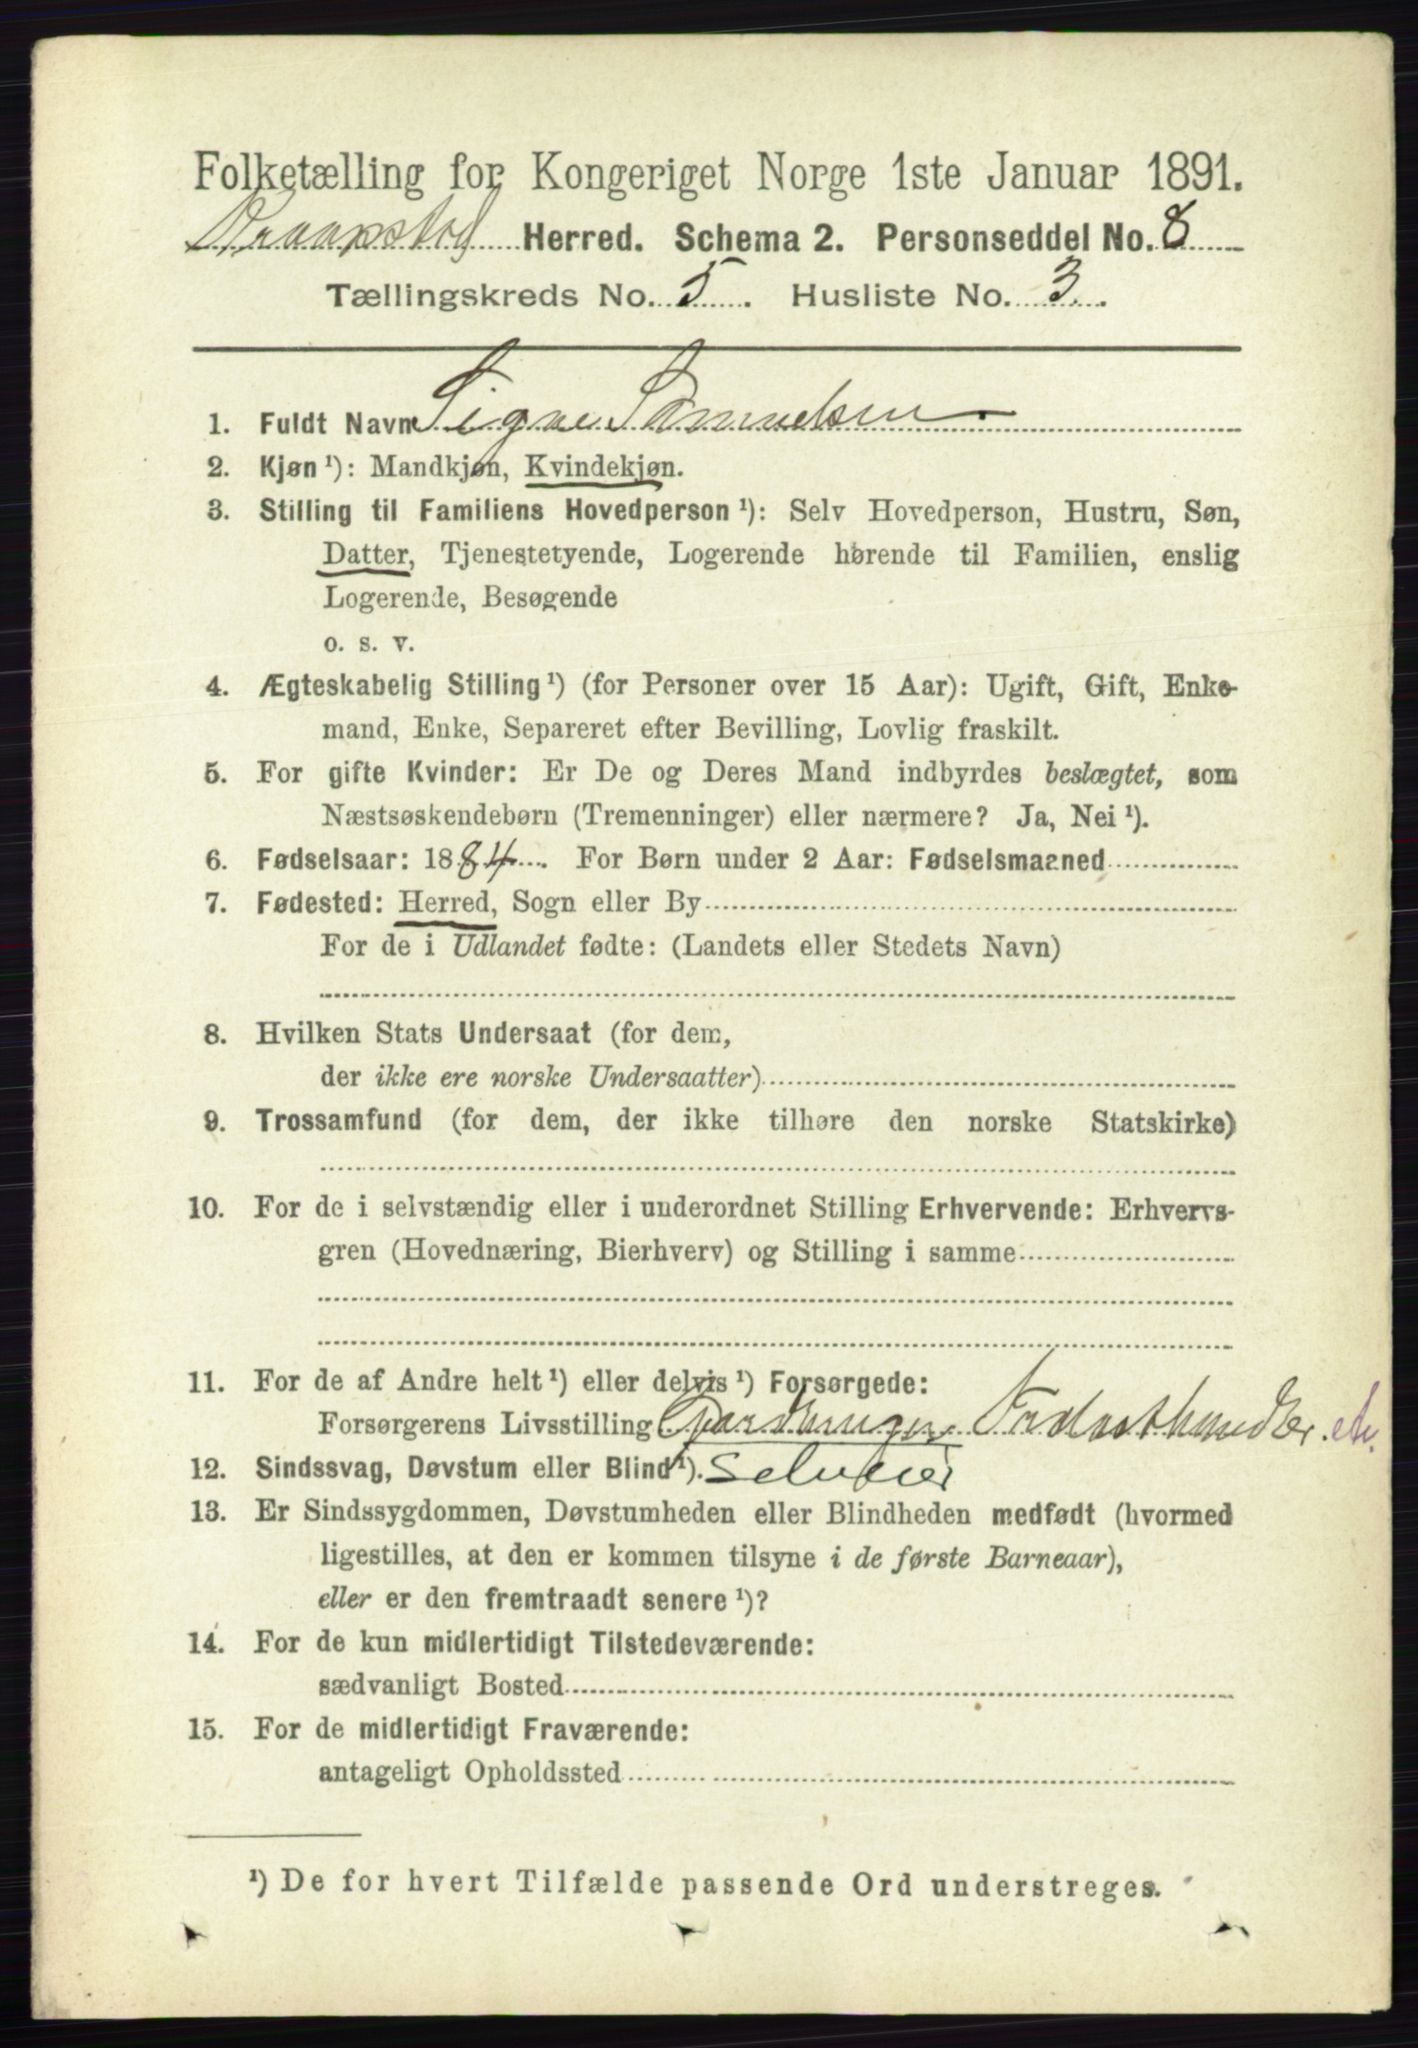 Folketælling for Kongeriget Norge 1ste Januar 1891.
Kraakstad Herred. Schema 2. Personseddel No. 8
Tællingskreds No. 5. Husliste No. 3.
1. Fuldt Navn Signe Samuelsen
2. Kjøn ¹): Mandkjøn, Kvindekjøn.
3. Stilling til Familiens Hovedperson ¹): Selv Hovedperson, Hustru, Søn,
Datter, Tjenestetyende, Logerende hørende til Familien, enslig
Logerende, Besøgende
o. s. v.
4. Ægteskabelig Stilling ¹) (for Personer over 15 Aar): Ugift, Gift, Enke-
mand, Enke, Separeret efter Bevilling, Lovlig fraskilt.
5. For gifte Kvinder: Er De og Deres Mand indbyrdes beslægtet, som
Næstsøskendebørn (Tremenninger) eller nærmere? Ja, Nei ¹).
6. Fødselsaar: 1884. For Børn under 2 Aar: Fødselsmaaned
7. Fødested: Herred, Sogn eller By
For de i Udlandet fødte: (Landets eller Stedets Navn)
8. Hvilken Stats Undersaat (for dem,
der ikke ere norske Undersaatter)
9. Trossamfund (for dem, der ikke tilhøre den norske Statskirke)
10. For de i selvstændig eller i underordnet Stilling Erhvervende: Erhvervs-
gren (Hovednæring, Bierhverv) og Stilling i samme
11. For de af Andre helt ¹) eller delvis ¹) Forsørgede:
Forsørgerens Livsstilling Gaardbruger
12. Sindssvag, Døvstum eller Blind ¹). Selveier
13. Er Sindssygdommen, Døvstumheden eller Blindheden medfødt (hvormed
ligestilles, at den er kommen tilsyne i de første Barneaar),
eller er den fremtraadt senere ¹)?
14. For de kun midlertidigt Tilstedeværende:
sædvanligt Bosted
15. For de midlertidigt Fraværende:
antageligt Opholdssted
¹) De for hvert Tilfælde passende Ord understreges.